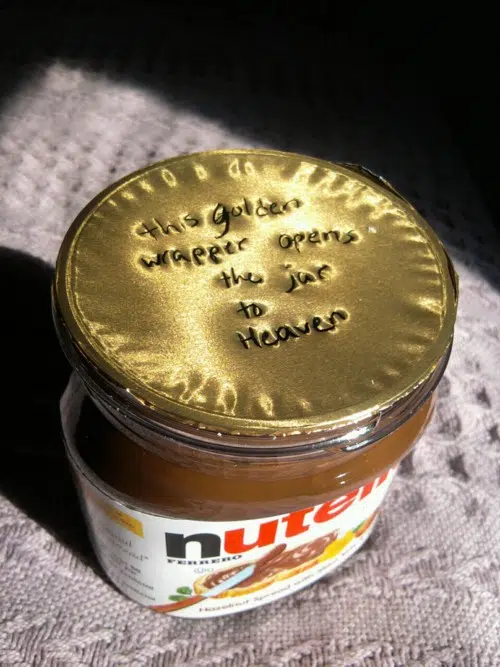 this golden
wrapper opens
the jar
to
Heaven
nutella
FERRERO
Hazelnut Spread with